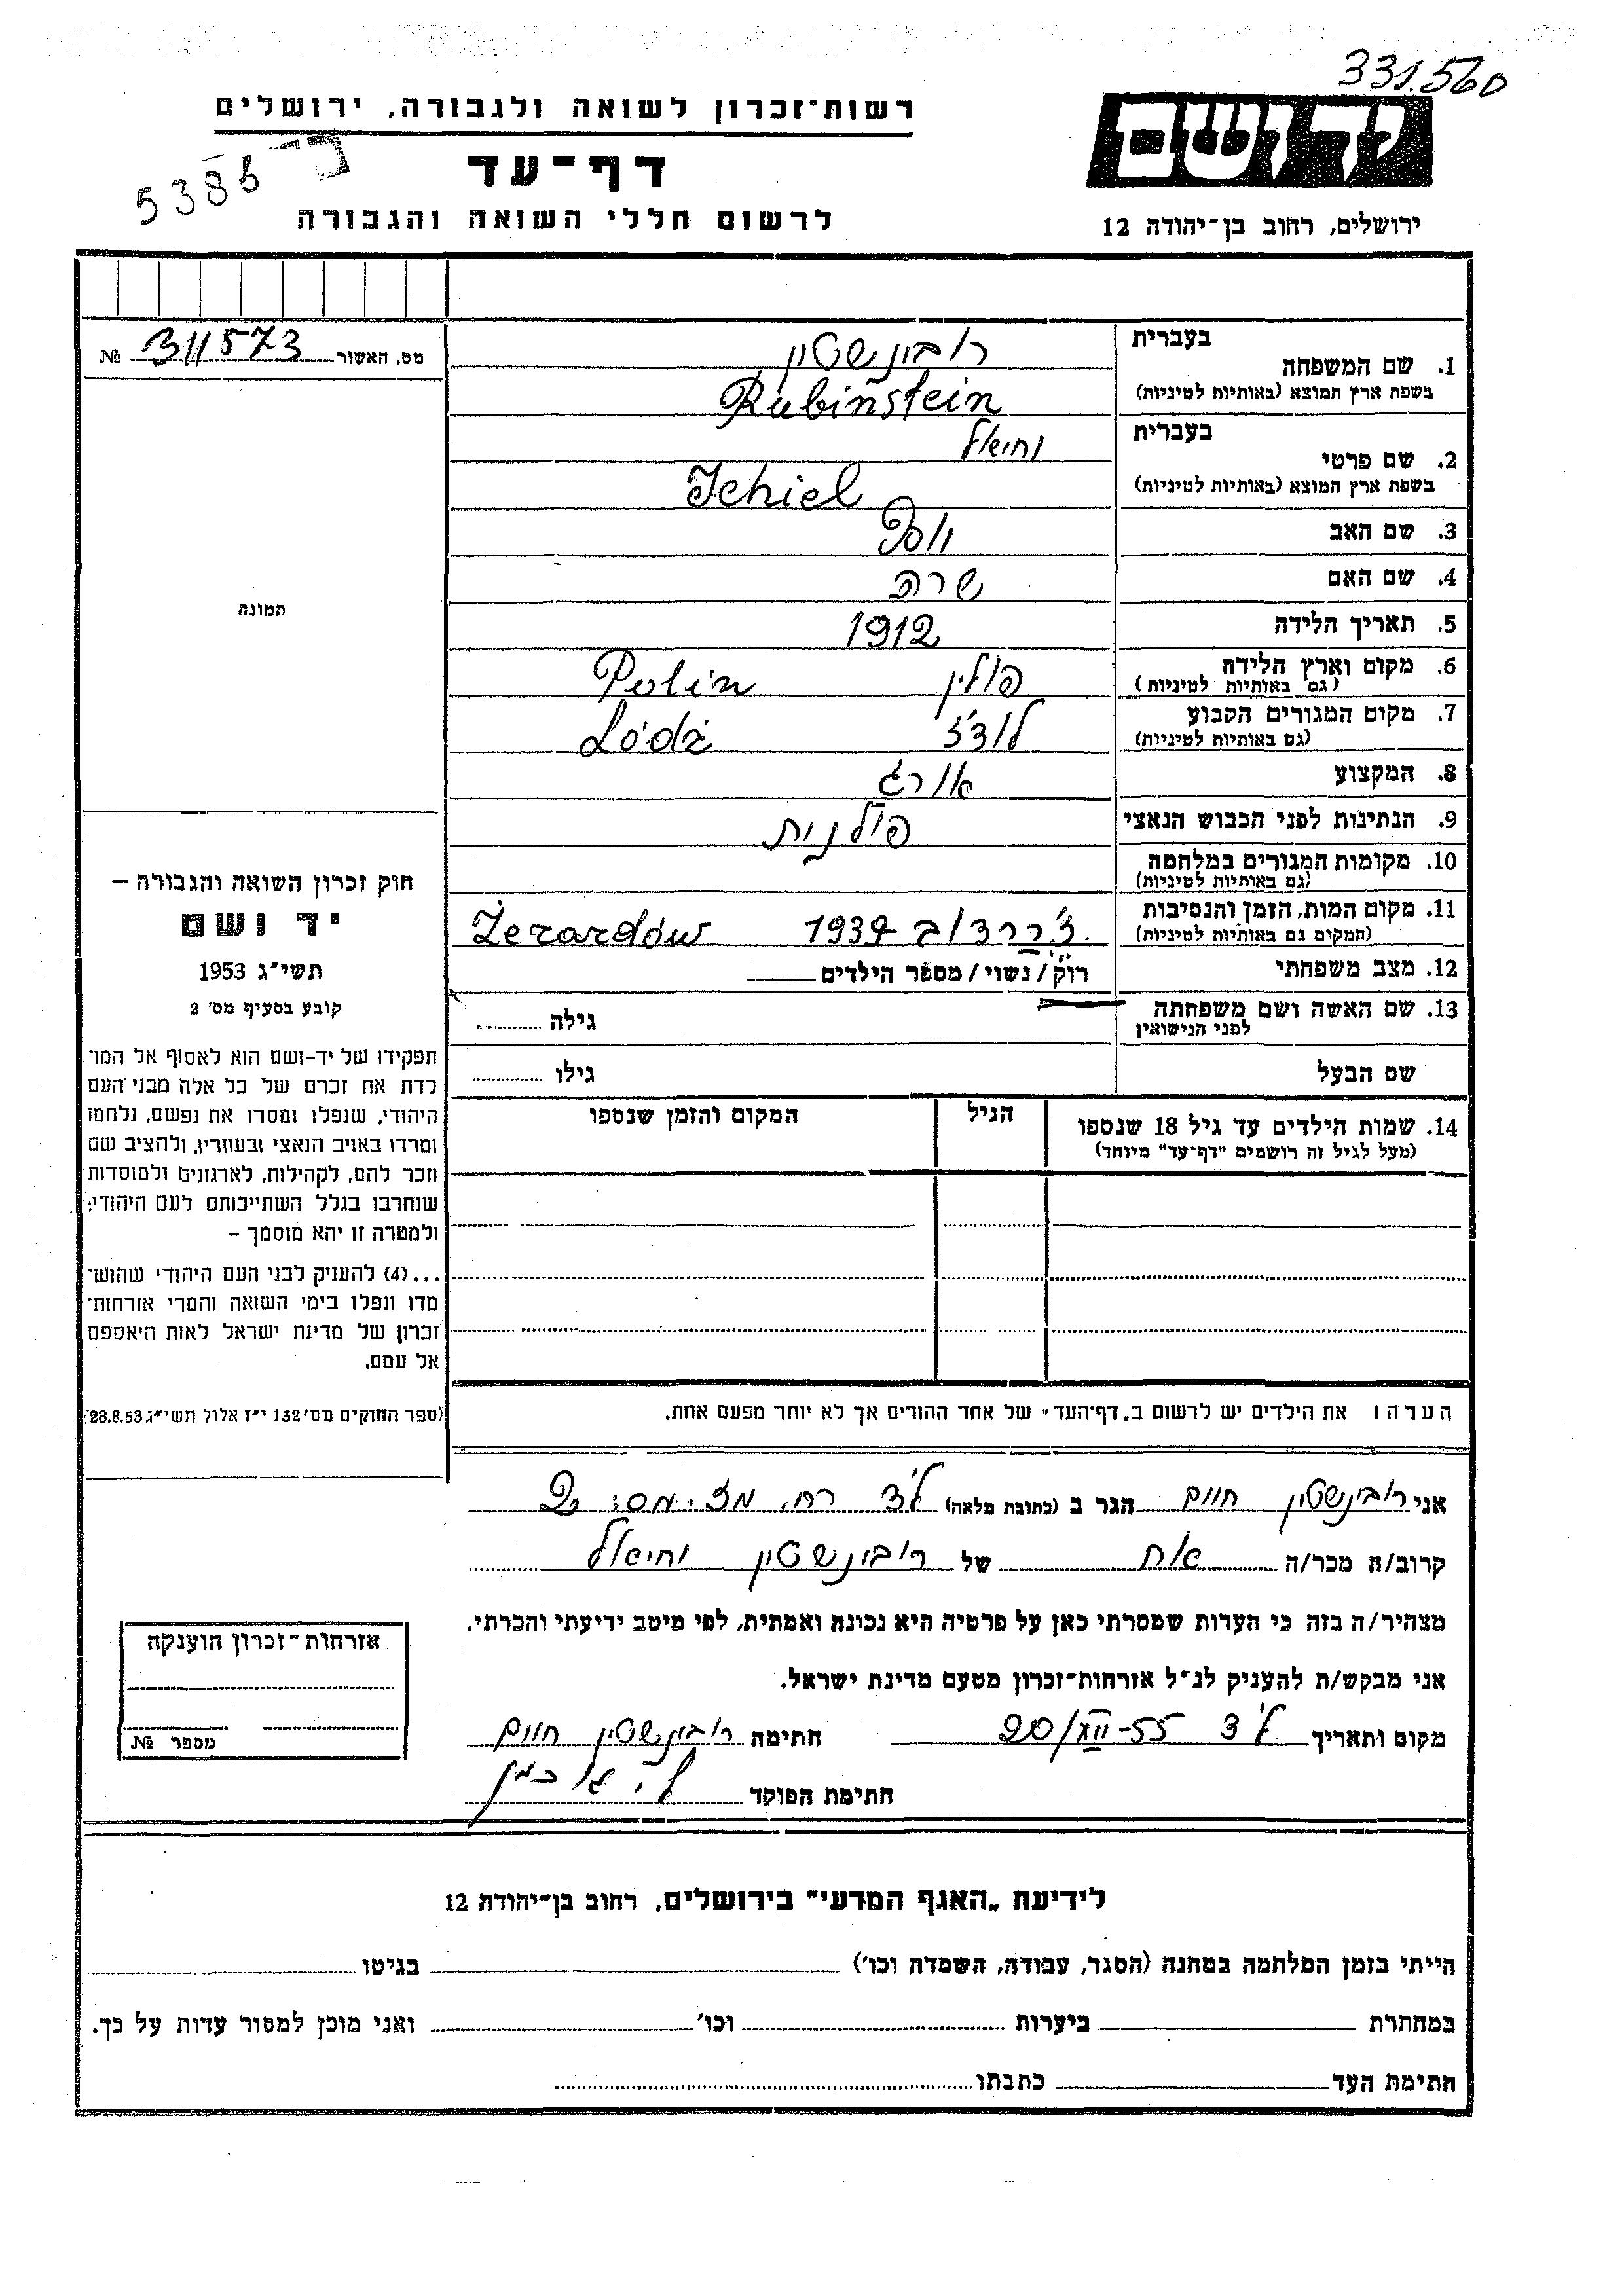 331.560
רשות־זכרון לשואה ולגבורה, ירושלים
דף־עד
לרשום חללי השואה והגבורה
5385
יד ושם
ירושלים, רחוב בן־יהודה 12
מס. האשור 311573 №
בעברית
1. שם המשפחה
רובינשטיין
בשפת ארץ המוצא (באותיות לטיניות)
Rubinstein
בעברית
2. שם פרטי
יחיאל
בשפת ארץ המוצא (באותיות לטיניות)
Ichiel
3. שם האב יוסף
4. שם האם שרה
5. תאריך הלידה 1912
6. מקום וארץ הלידה פולין Polin
(גם באותיות לטיניות)
7. מקום המגורים הקבוע לודז' Lódź
(גם באותיות לטיניות)
8. המקצוע אורג
9. הנתינות לפני הכבוש הנאצי פולנית
10. מקומות המגורים במלחמה
(גם באותיות לטיניות)
11. מקום המות, הזמן והנסיבות 1939 Żerardów
(המקום גם באותיות לטיניות)
12. מצב משפחתי רוק/ נשוי/ מספר הילדים
13. שם האשה ושם משפחתה גילה
לפני הנישואין
שם הבעל גילו
14. שמות הילדים עד גיל 18 שנספו הגיל המקום והזמן שנספו
(מעל לגיל זה רושמים "דף־עד" מיוחד)
הערה ו את הילדים יש לרשום ב.דף־העד" של אחד ההורים אך לא יותר מפעם אחת.
תמונה
חוק זכרון השואה והגבורה –
יד ושם
תשי"ג 1953
קובע בסעיף מס' 2
תפקידו של יד-ושם הוא לאסוף אל המו־
לדת את זכרם של כל אלה מבני העם
היהודי, שנפלו ומסרו את נפשם, נלחמו
ומרדו באויב הנאצי ובעוזריו, ולהציב שם
וזכר להם, לקהילות, לארגונים ולמוסדות
שנחרבו בגלל השתייכותם לעם היהודי;
ולמטרה זו יהא מוסמך –
...(4) להעניק לבני העם היהודי שהוש־
מדו ונפלו בימי השואה והמרי אזרחות־
זכרון של מדינת ישראל לאות היאספם
אל עמם.
(ספר החוקים מס' 132 י"ז אלול תשי"ג 28.8.53)
אני רובינשטיין חיים הגר ב (כתובת מלאה)
קרוב/ה מכר/ה אח של רובינשטיין יחיאל
מצהיר/ה בזה כי העדות שמסרתי כאן על פרטיה היא נכונה ואמתית, לפי מיטב ידיעתי והכרתי.
אני מבקש/ת להעניק לנ"ל אזרחות־זכרון מטעם מדינת ישראל.
מקום ותאריך לוד 20/XII-55 חתימה רובינשטיין חיים
חתימת הפוקד
אזרחות־זכרון הוענקה
מספר №
לידיעת „האגף המדעי" בירושלים, רחוב בן־יהודה 12
הייתי בזמן המלחמה במחנה (הסגר, עבודה, השמדה וכו') בגיטו
במחתרת ביערות וכו' ואני מוכן למסור עדות על כך.
חתימת העד כתבתו